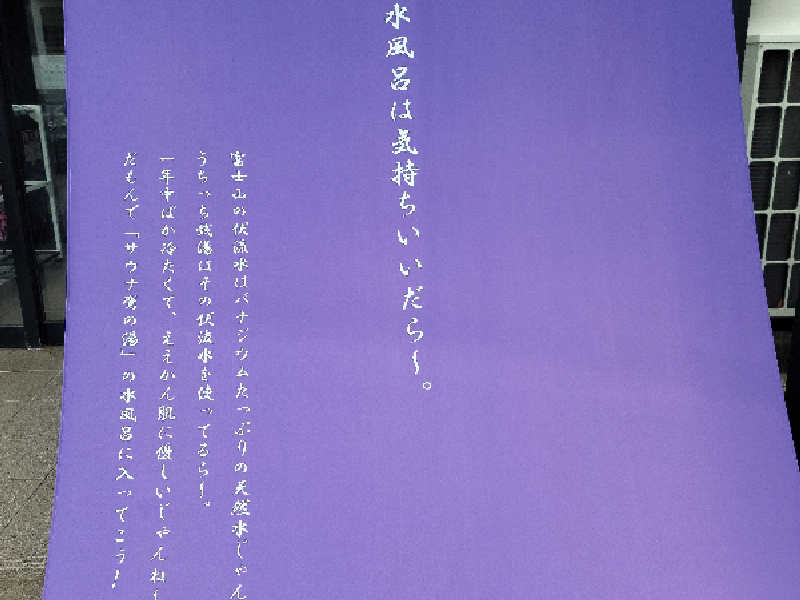 水風呂は気持ちいいだら〜。
富士山の伏流水はバナジウムたっぷりの天然水じゃん
うちっち銭湯はその伏流水を使ってるら〜。
一年中ばか冷たくて、ええかん肌に優しいじゃんね〜
だもんで「サウナ鷹の湯」の水風呂に入ってこう！